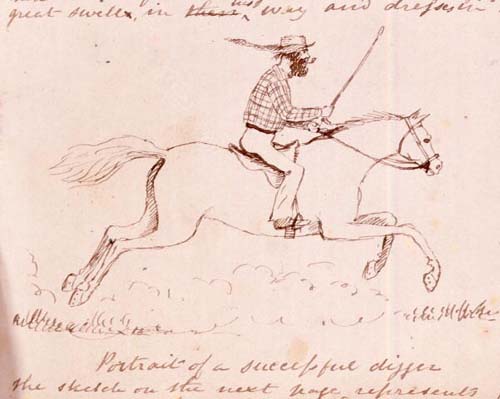 great swells, in their his way and dresses in
Portrait of a successful digger
the sketch on the next page represents